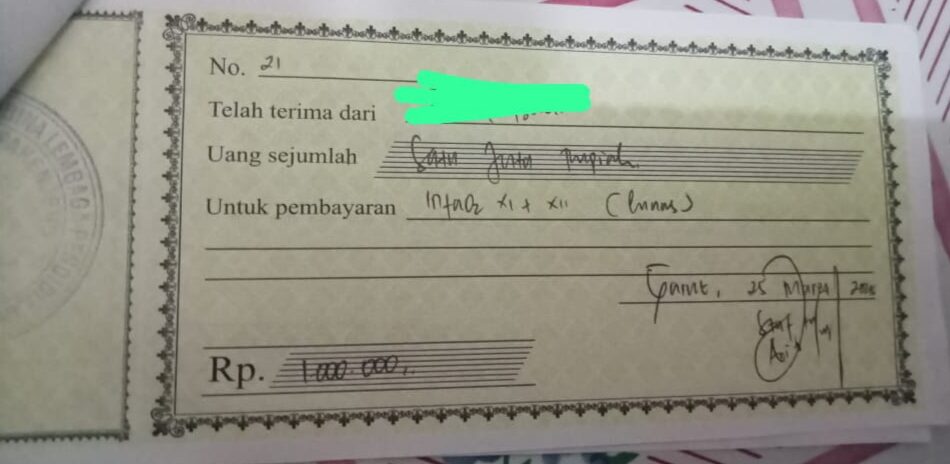 No. 21
Telah terima dari
Uang sejumlah Satu Juta rupiah.
Untuk pembayaran Infaq XI + XII (lunas)
Garut, 25 Maret
Staf
Rp. 1.000.000,-
LEMBAGA